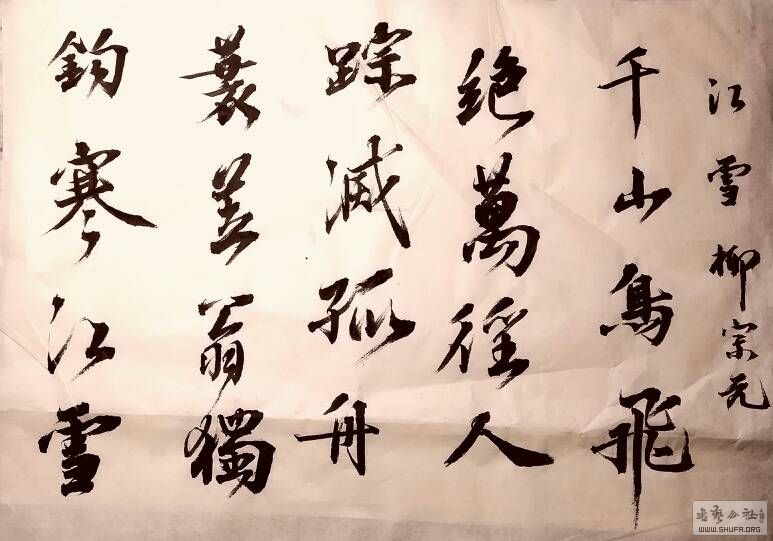 江雪 柳宗元
千山鳥飛
絶萬徑人
踪滅孤舟
蓑笠翁獨
釣寒江雪
WWW.SHUFA.ORG